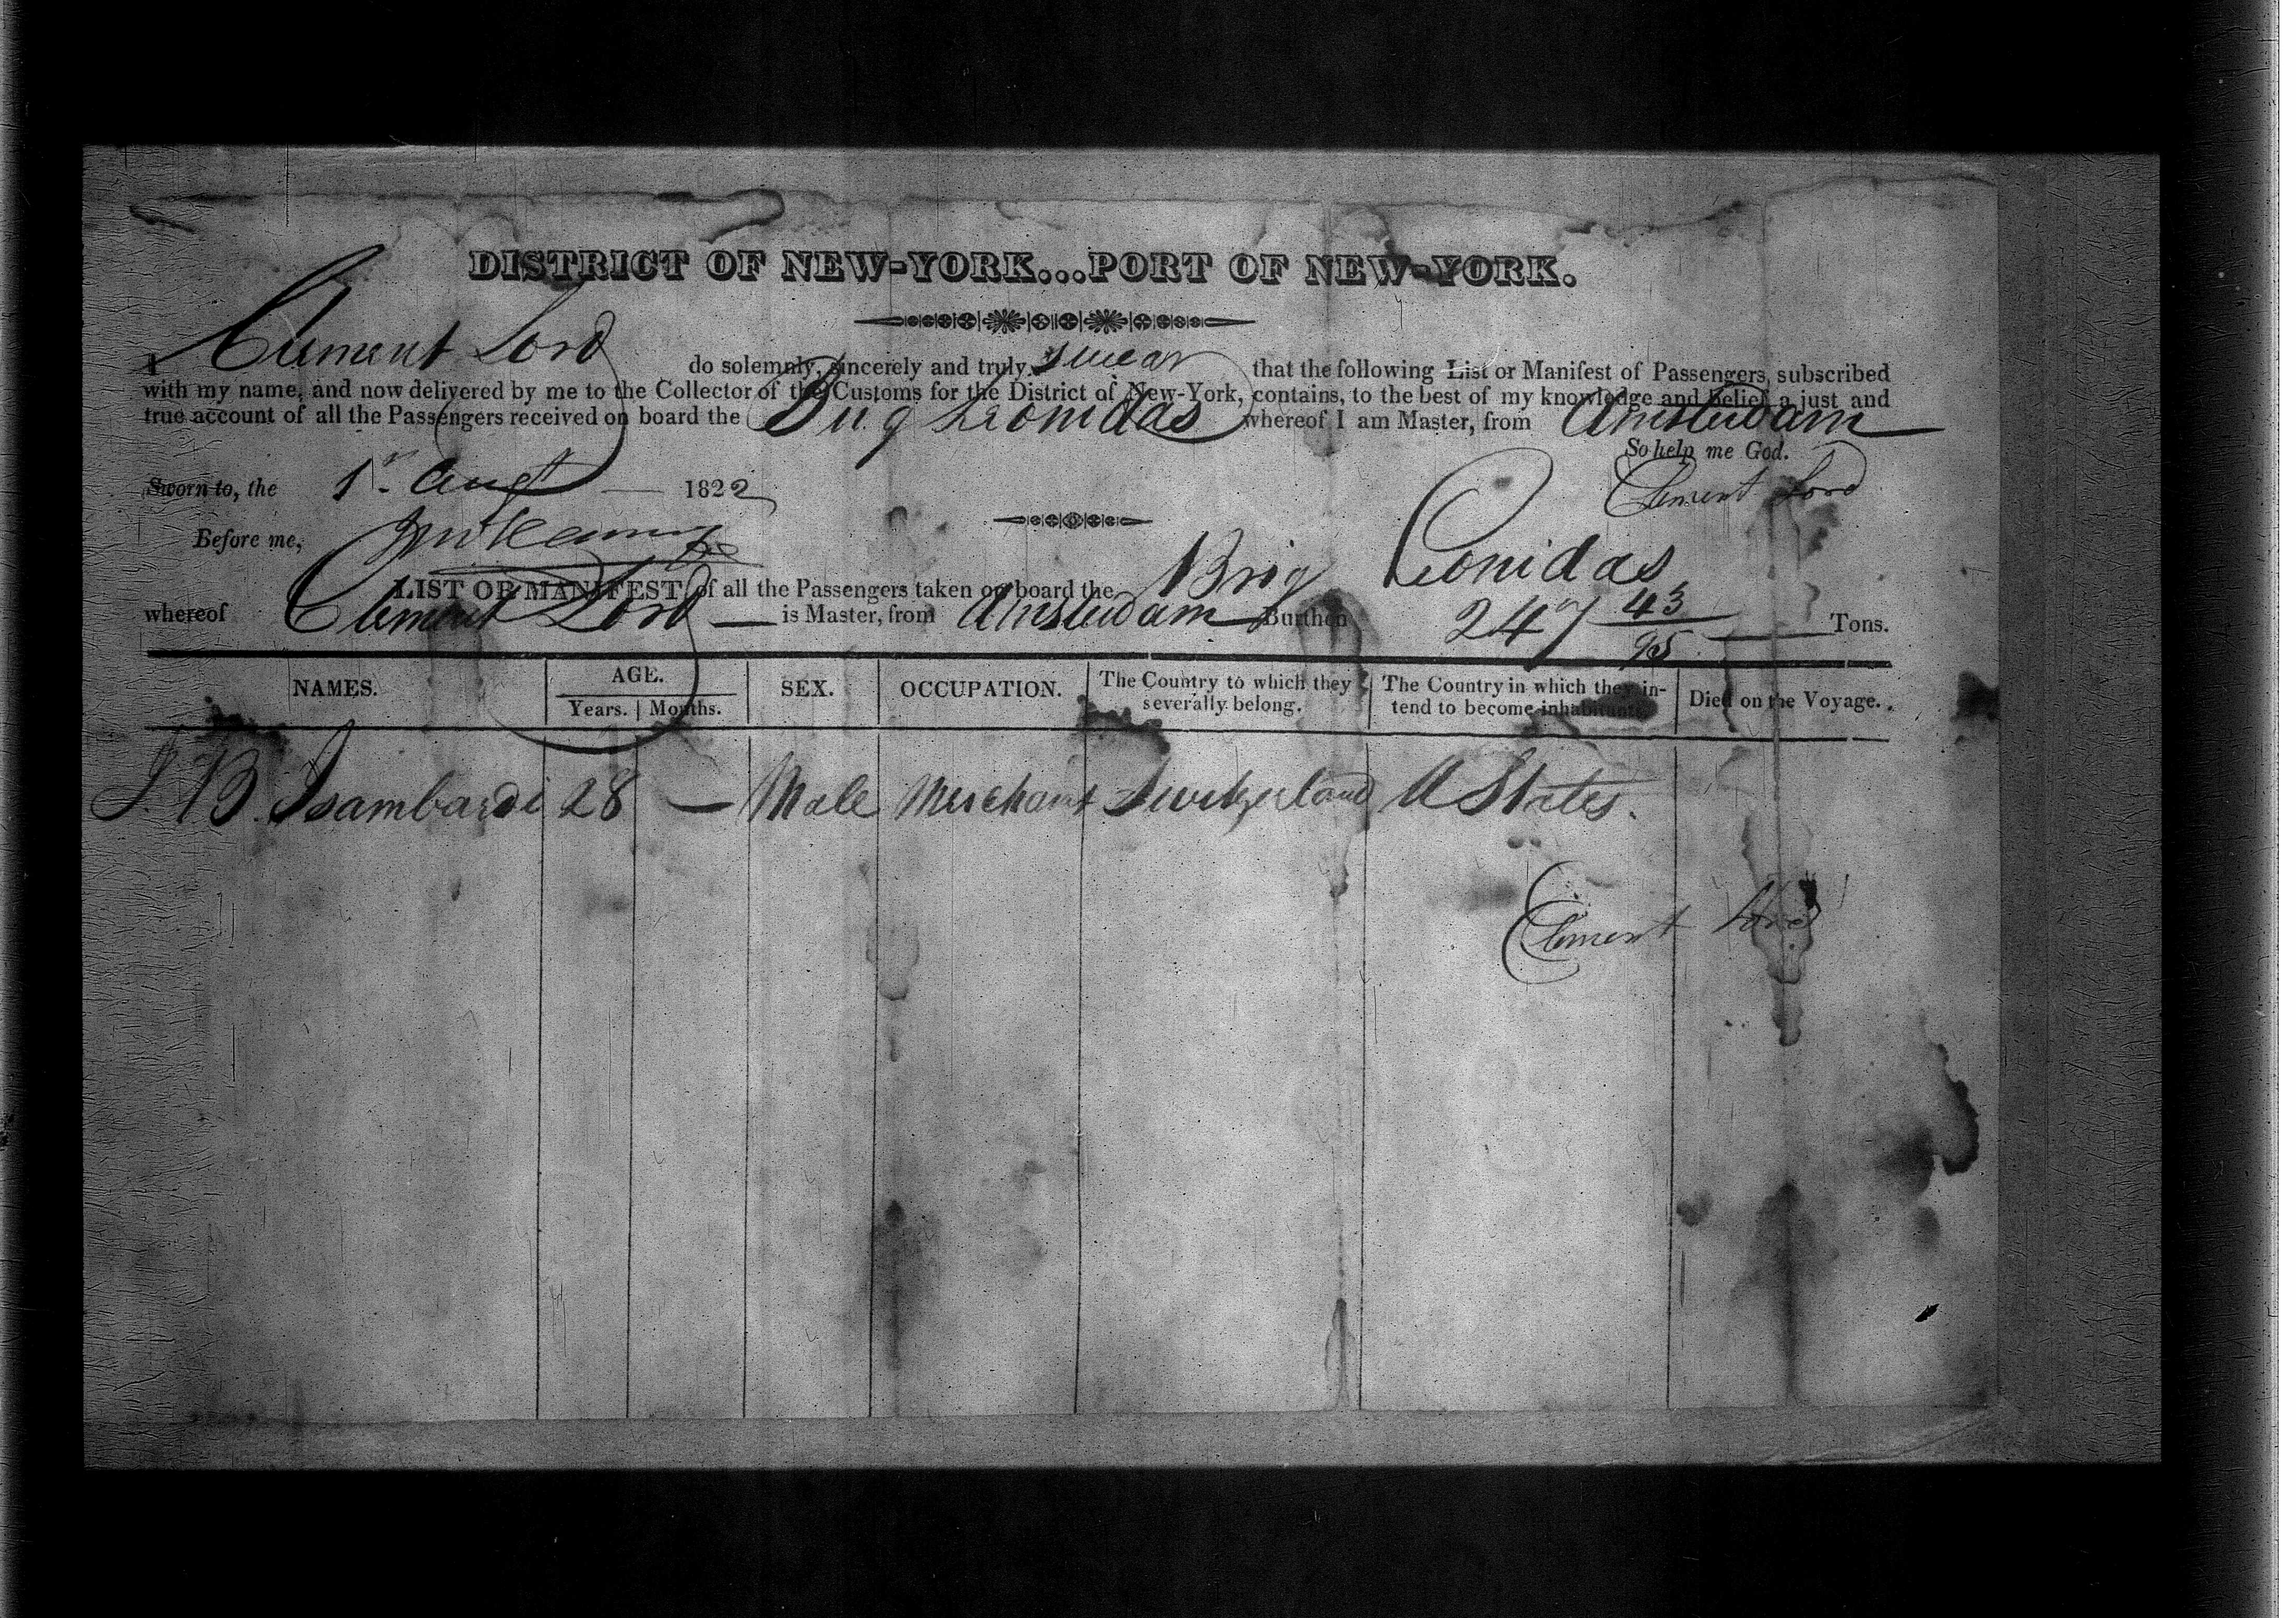 DISTRICT OF NEW-YORK...PORT OF NEW-YORK.
I Clement Lord do solemnly, sincerely and truly swear that the following List or Manifest of Passengers, subscribed
with my name, and now delivered by me to the Collector of the Customs for the District of New-York, contains, to the best of my knowledge and belief, a just and
true account of all the Passengers received on board the Brig Leonidas whereof I am Master, from Amsterdam
So help me God.
Sworn to, the 1st Augt 1822
Clement Lord
Before me,
LIST OR MANIFEST of all the Passengers taken on board the Brig Leonidas
whereof Clement Lord is Master, from Amsterdam Burthen 247 43/95 Tons.
NAMES. AGE. Years. Months. SEX. OCCUPATION. The Country to which they severally belong. The Country in which they intend to become inhabitants. Died on the Voyage.
J. B. Isambardi 28 — Male Merchant Switzerland U States.
Clement Lord